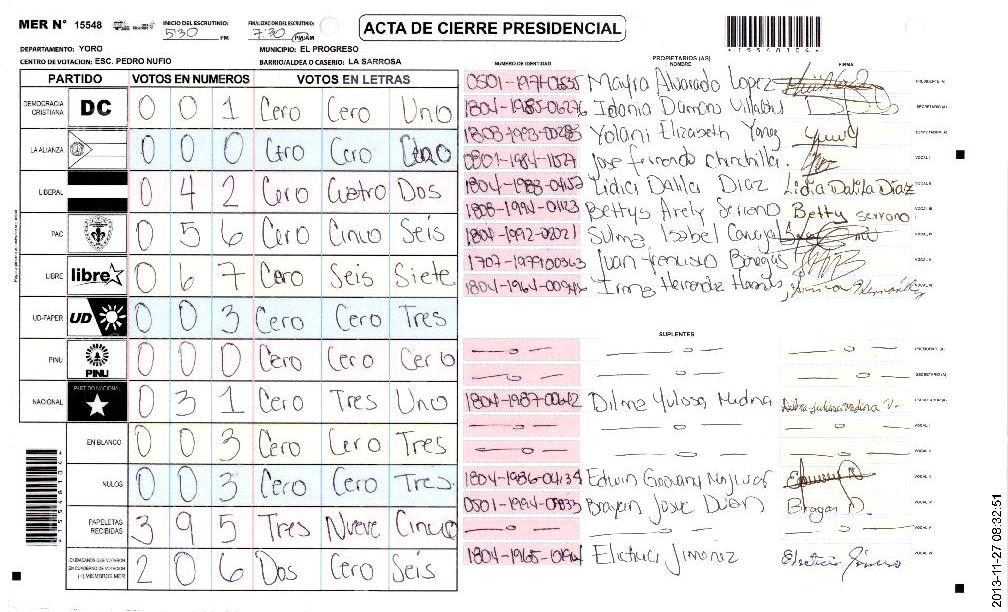 MER N° 15548
INICIO DEL ESCRUTINIO: 5:30 PM
FINALIZACION DEL ESCRUTINIO: 7:30 PM/AM
ACTA DE CIERRE PRESIDENCIAL
*15548104*
DEPARTAMENTO: YORO
MUNICIPIO: EL PROGRESO
CENTRO DE VOTACION: ESC. PEDRO NUFIO
BARRIO/ALDEA O CASERIO: LA SARROSA
PARTIDO VOTOS EN NUMEROS VOTOS EN LETRAS
DEMOCRACIA CRISTIANA DC 0 0 1 Cero Cero Uno
LA ALIANZA 0 0 0 Cero Cero Cero
LIBERAL 0 4 2 Cero Cuatro Dos
PAC 0 5 6 Cero Cinco Seis
LIBRE libre 0 6 7 Cero Seis Siete
UD-FAPER UD 0 0 3 Cero Cero Tres
PINU PINU 0 0 0 Cero Cero Cero
NACIONAL PARTIDO NACIONAL 0 3 1 Cero Tres Uno
EN BLANCO 0 0 3 Cero Cero Tres
NULOS 0 0 3 Cero Cero Tres
PAPELETAS RECIBIDAS 3 9 5 Tres Nueve Cinco
CIUDADANOS QUE VOTARON EN CUADERNO DE VOTACION (+) MIEMBROS MER 2 0 6 Dos Cero Seis
PROPIETARIOS (AS)
NUMERO DE IDENTIDAD NOMBRE FIRMA
Mayra Alvarado Lopez PRESIDENTE (A)
1804-1985-06276 SECRETARIO (A)
1808-1993-00283 Yolani Elizabeth
0801-1984-11527 Jose fernando chinchilla. VOCAL I
1804-1988-0452 Lidia Dalila Diaz Lidia Dalila Diaz VOCAL II
1808-1994-01123 Bettys Arely Serrano Betty serrano VOCAL III
1804-1992-02021 Sulma Isabel
1707-1979-00363 Juan francisco
Irma Hernandez
SUPLENTES
PRESIDENTE (A)
SECRETARIO (A)
1804-1987-00642 Dilma Yulissa Medina
VOCAL I
Edwin
Josue
1804-1965- Jimenez
2013-11-27 08:32:51